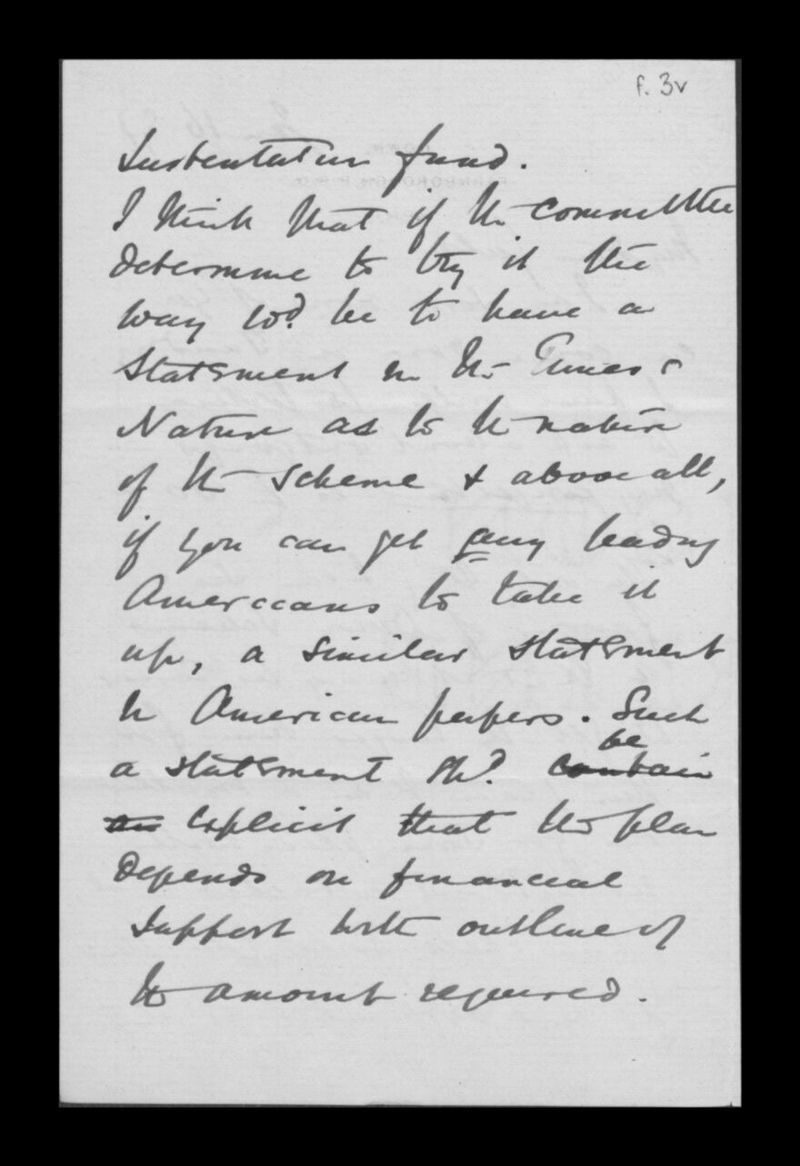 f. 3v
Sustentation fund.
I think that if the committee
determine to try it the
way wd. be to have a
statement in the Times &
Nature as to the nature
of the scheme & above all,
if you can get any leading
Americans to take it
up, a similar statement
in American papers. Such
be
a statement shd. contain
an explicit that the plan
depends on financial
support with outline of
the amount required.